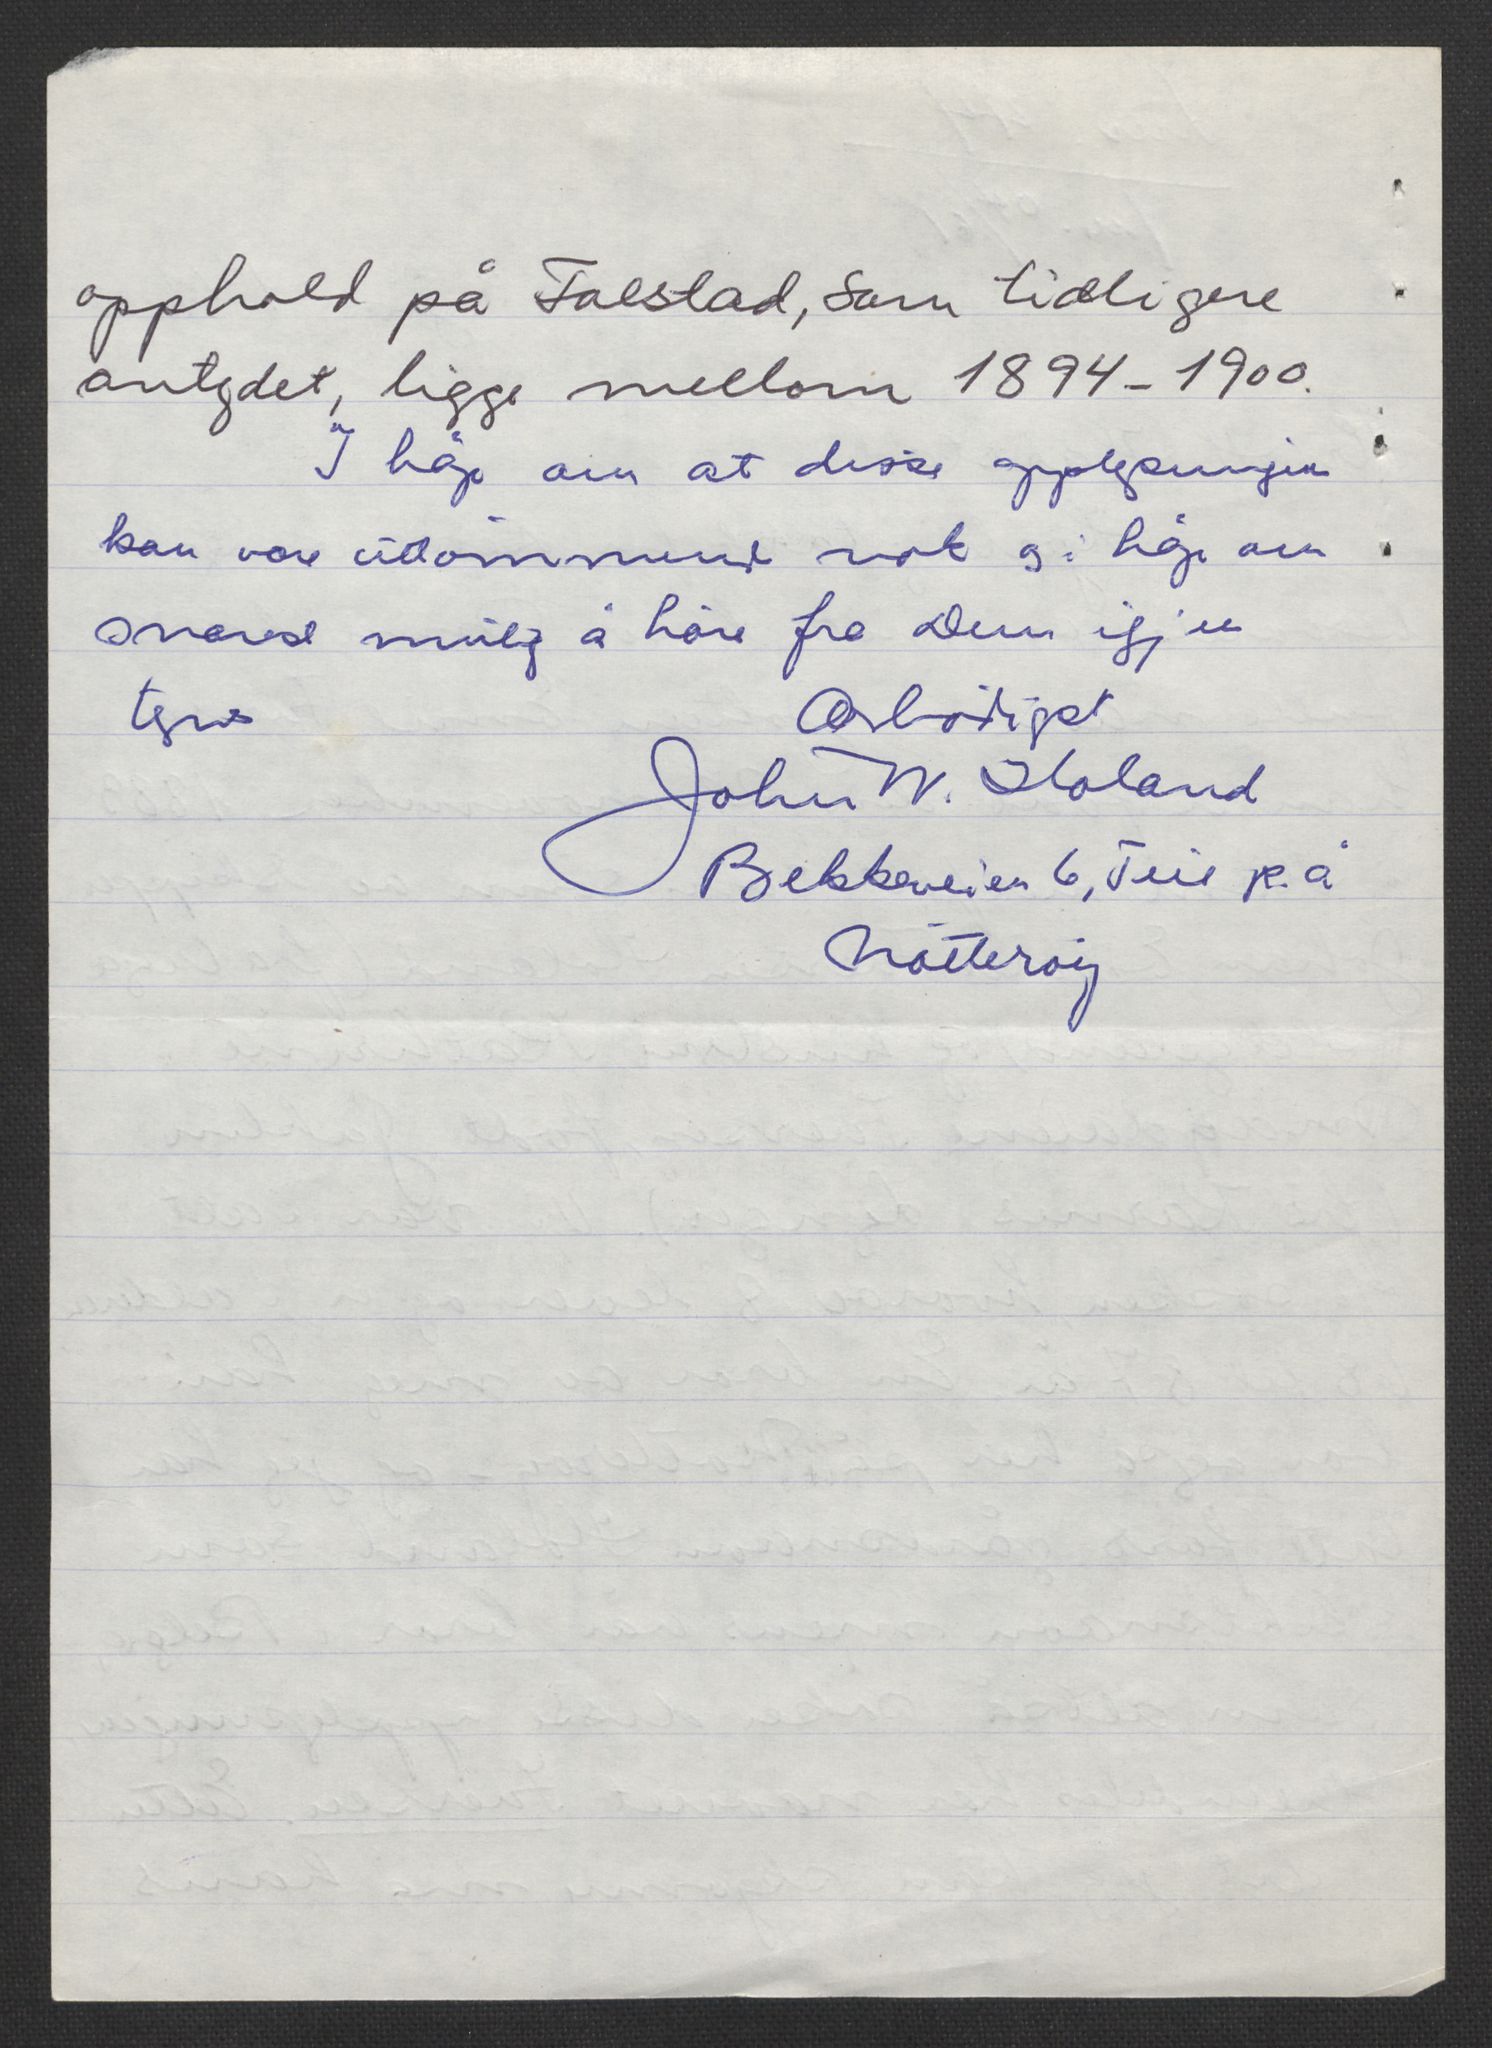 opphold på Falstad, som tidligere
antydet, ligge mellom 1894-1900.
I håp om at disse opplysninger
kan være uttömmende nok og i håp om
snarest mulig å höre fra Dem igjen
tegnes
Ærbödigst
John W. Holand
Bekkeveien 6, Teie p.å
Nötteröy